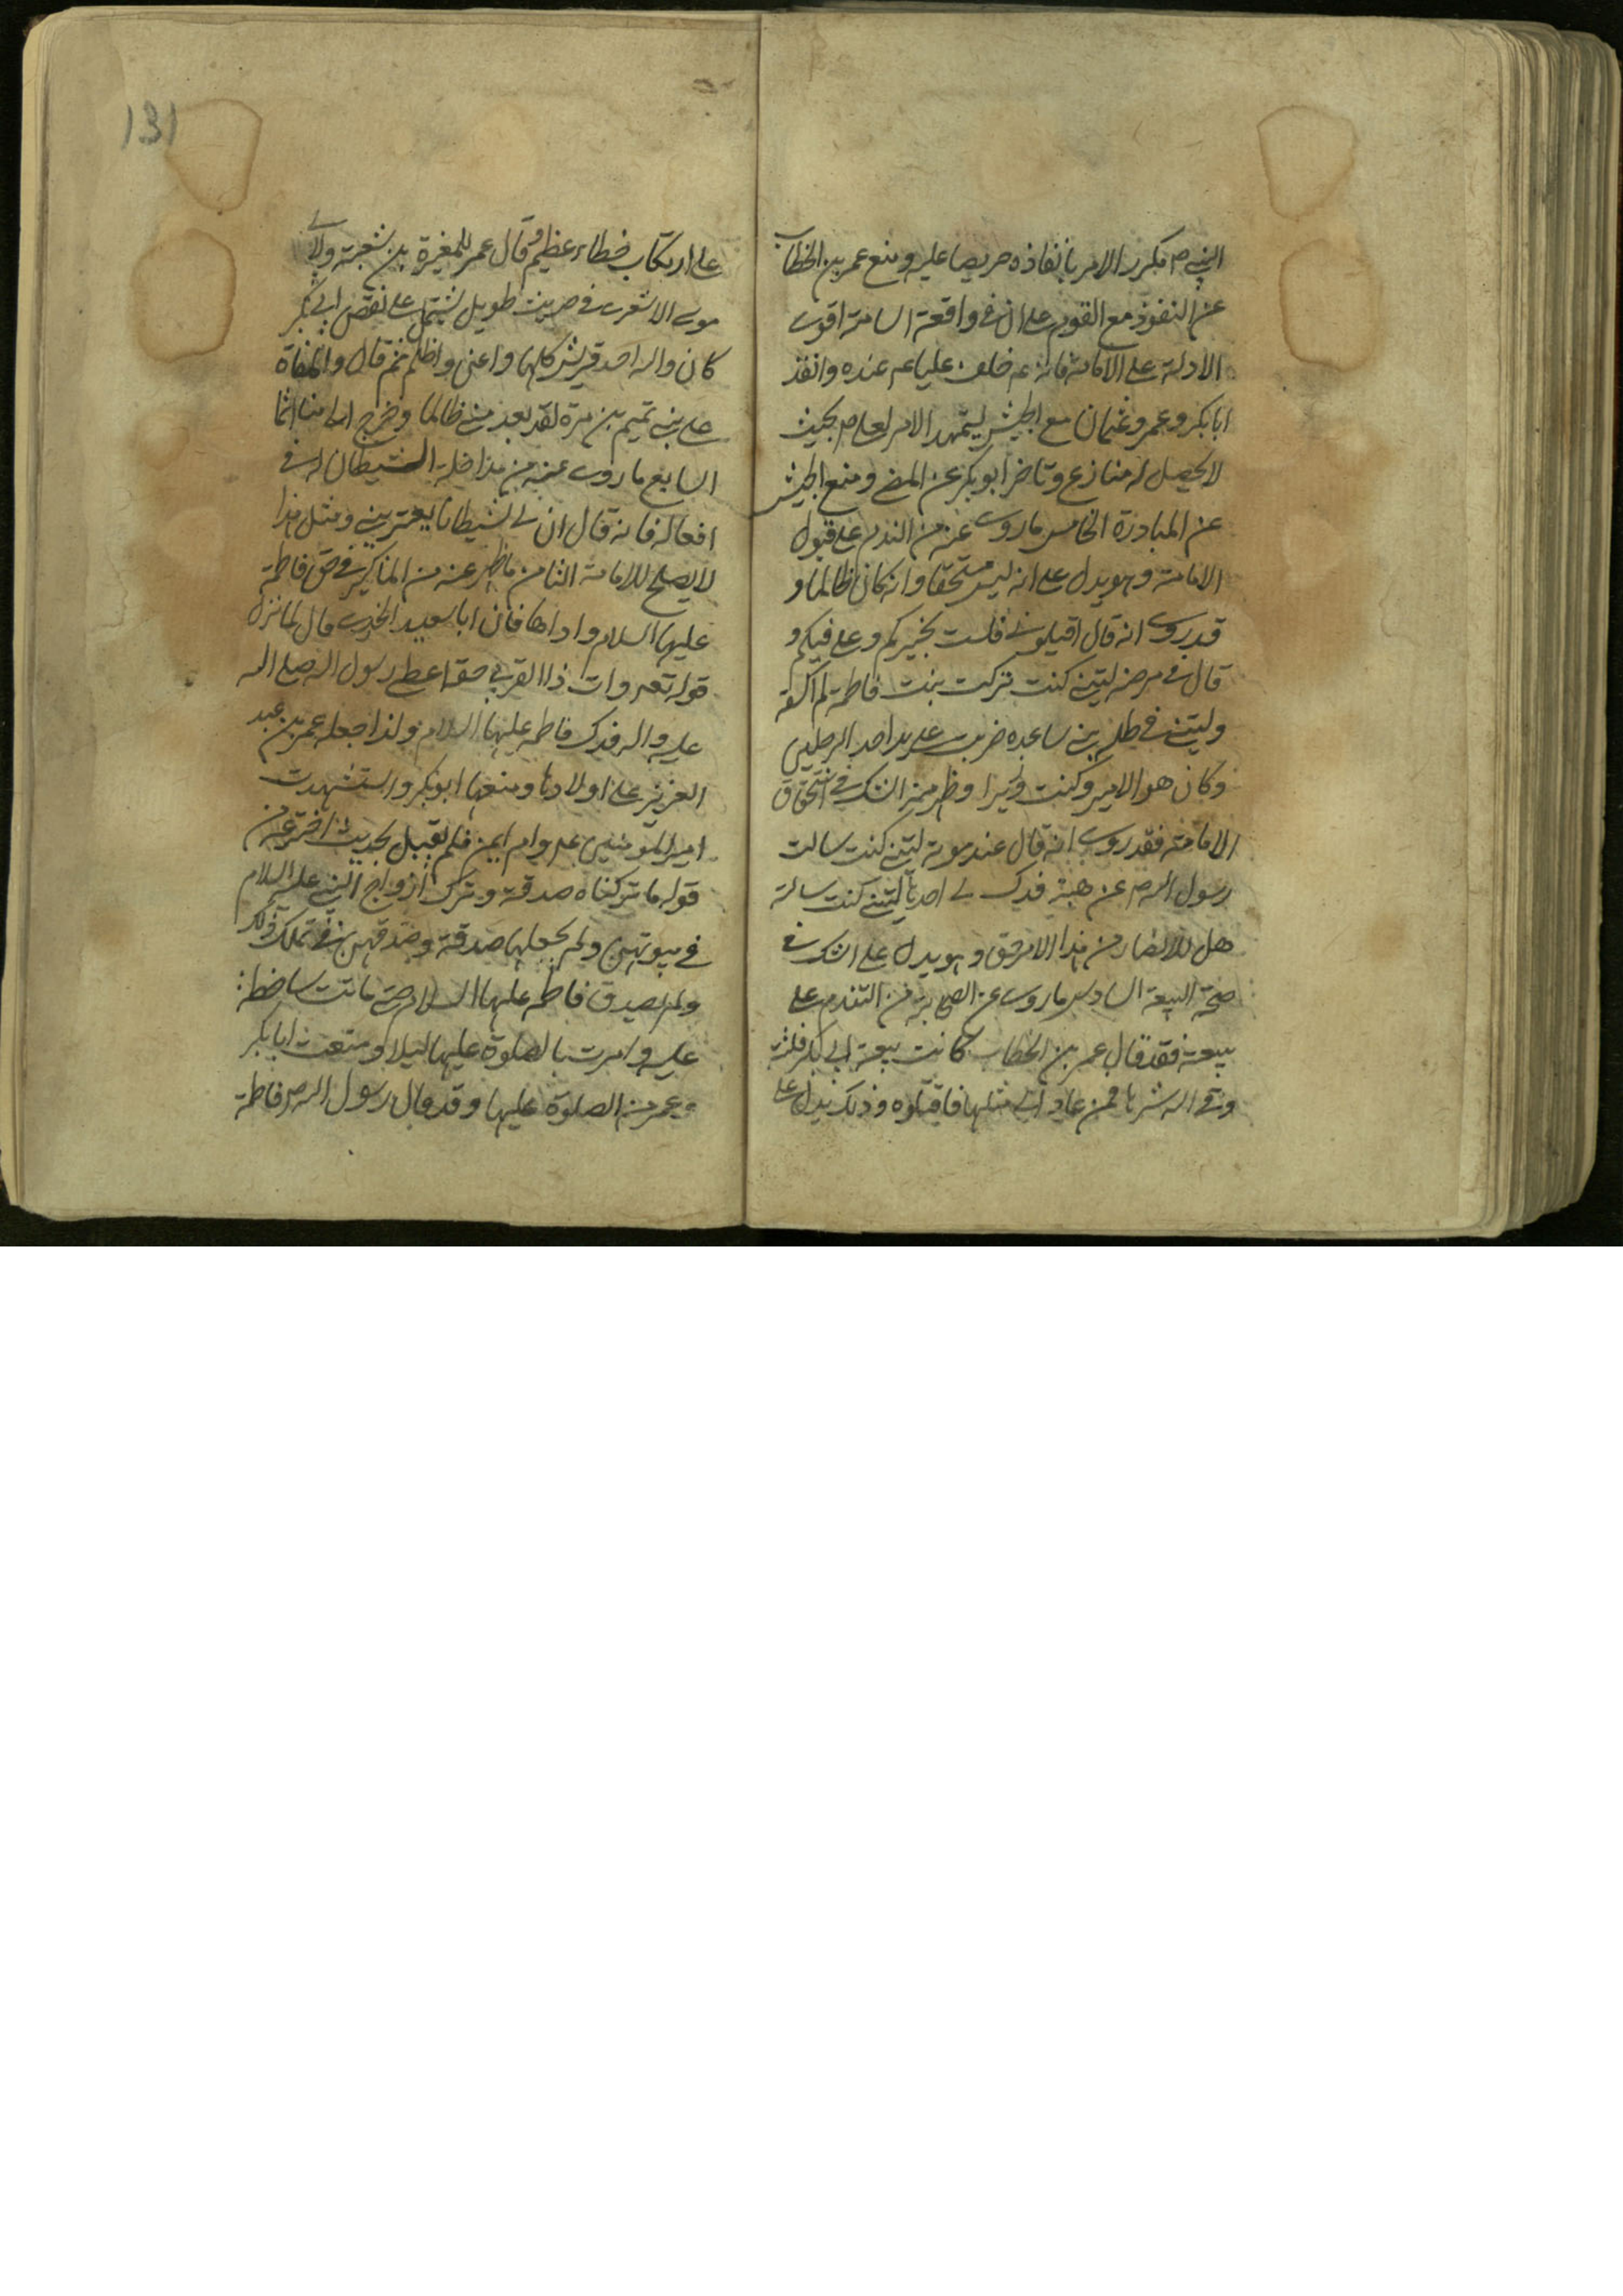 النبي ص مكرر الامر بانفاذه حريصا عليه ومنع عمر بن الخطاب
عن النفوذ مع القوم على ان في واقعة اسامة اقوى
الادلة على الامامة فانه عم خلف عليا عم عنده وانفذ
ابابكر وعمر وعثمان مع الجيش ليتمهد الامر لعلي ص بحيث
لا يحصل له منازع وتاخر ابو بكر عن المضي ومنع الجيش
عن المبادرة الخامس ما روى عنه من الندم على قبول
الامامة وهو يدل على انه ليس مستحقا وانه كان ظالما و
قد روى انه قال اقيلوني فلست بخيركم وعلي فيكم و
قال في مرضه ليتني كنت تركت بنت فاطمة لم اكشفه
وليتني في ظلة بني ساعده ضربت على يد احد الرجلين
وكان هو الامير وكنت وزيرا وظهر منه الشك في استحقاق
الامامة فقد روى انه قال عند موته ليتني كنت سالت
رسول الله ص عن هبة فدك لي احديها ليتني كنت سالته
هل للانصار من هذا الامر حق وهو يدل على الشك في
صحة البيعة السادس ما روى عن الصحابة من التندم على
بيعته فقد قال عمر بن الخطاب كانت بيعة ابي بكر فلتة
وقى الله شرها فمن عاد الى مثلها فاقتلوه وذلك يدل على
131
على ارتكاب خطاء عظيم وقال عمر للمغيرة بن شعبة ولابي
موسى الاشعري في حديث طويل يشتمل على نقص ابي بكر
كان والله احسد قريش كلها واعنى واظلم ثم قال والهفاة
على بني تميم بن مرة لقد بعد مني ظالما وخرج الى منها اثما
السابع ما روى عنه من مداخلة الشيطان له في
افعاله فانه قال ان لي شيطانا يعتريني ومثل هذا
لا يصلح للامامة الثامن ما ظهر عنه من المناكير في حق فاطمة
عليها السلام واذاها فان ابا سعيد الخدري قال لما نزل
قوله تعه وات ذا القربى حقه اعطى رسول الله صلى الله
عليه واله فدك فاطمه عليها السلام ولذا جعله عمر بن عبد
العزيز على اولادها ومنعها ابو بكر واستشهدت
امير المؤمنين عم وام ايمن فلم يقبل لحديث اخترعه من
قوله ما تركناه صدقة وترك ازواج النبي عليه السلام
في بيوتهن ولم يجعلها صدقة وصدقهن في تملك ذلك
ولم يصدق فاطمه عليها السلام حتى ماتت ساخطة
عليه وامرت بالصلوة عليها ليلا ومنعت ابابكر
وعمر من الصلوة عليها وقد قال رسول الله ص فاطمة